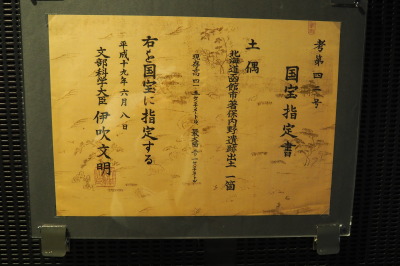 考第四三号
国宝指定書
土偶
北海道函館市著保内野遺跡出土 一箇
右を国宝に指定する
平成十九年六月八日
文部科学大臣 伊吹文明